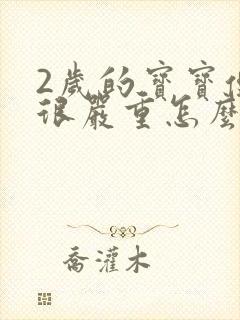 2歲的寶寶
很嚴重怎麼
喬灌木